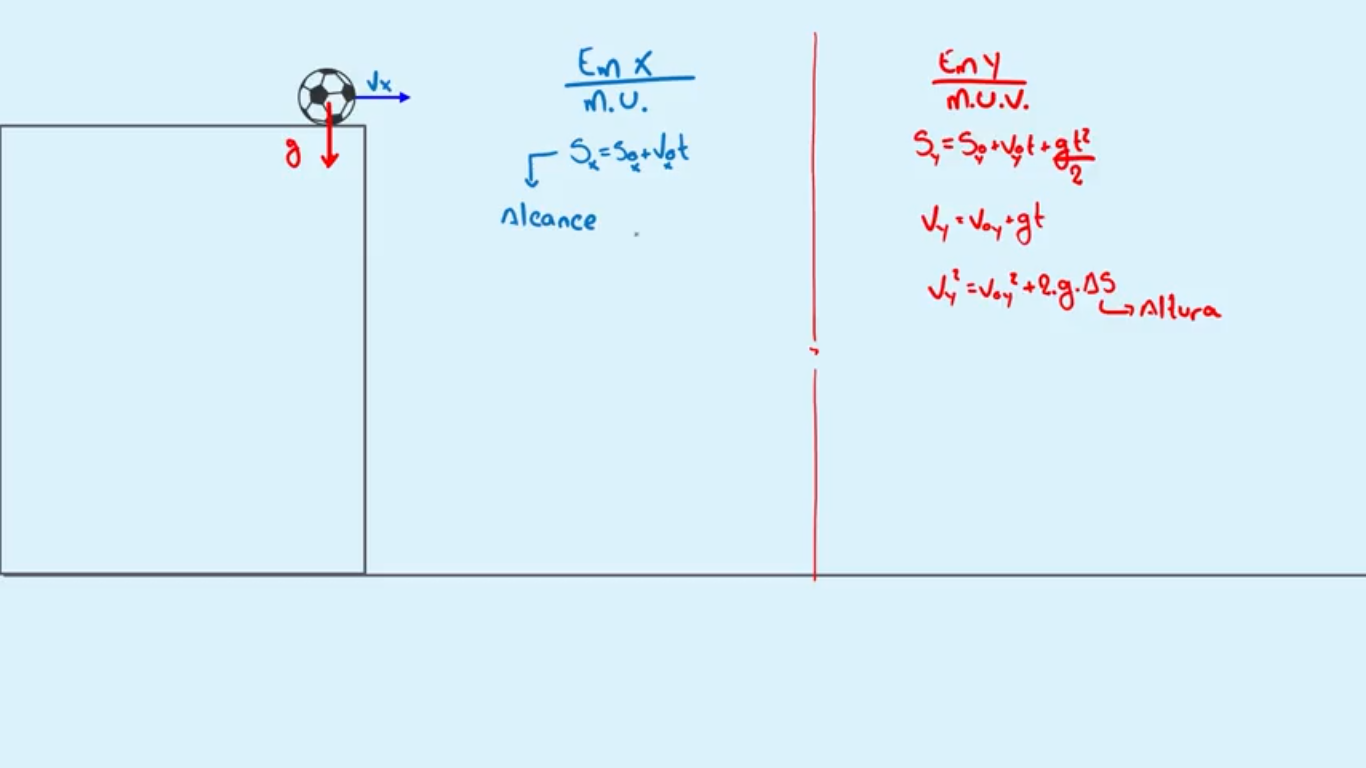 Vx
g
Em X
M.U.
Sx = S0x + V0x t
Alcance
Em Y
M.U.V.
Sy = S0y + V0y t + gt²/2
Vy = V0y + gt
Vy² = V0y² + 2.g.ΔS
Altura